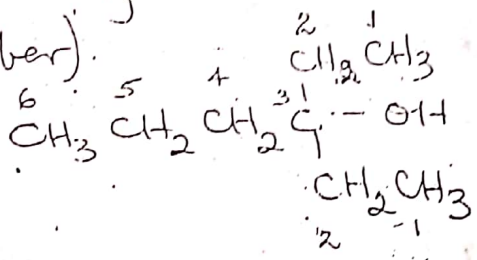 ber).
2 1
CH2 CH3
6 5 4 3
CH3 CH2 CH2 C - OH
CH2CH3
2 1